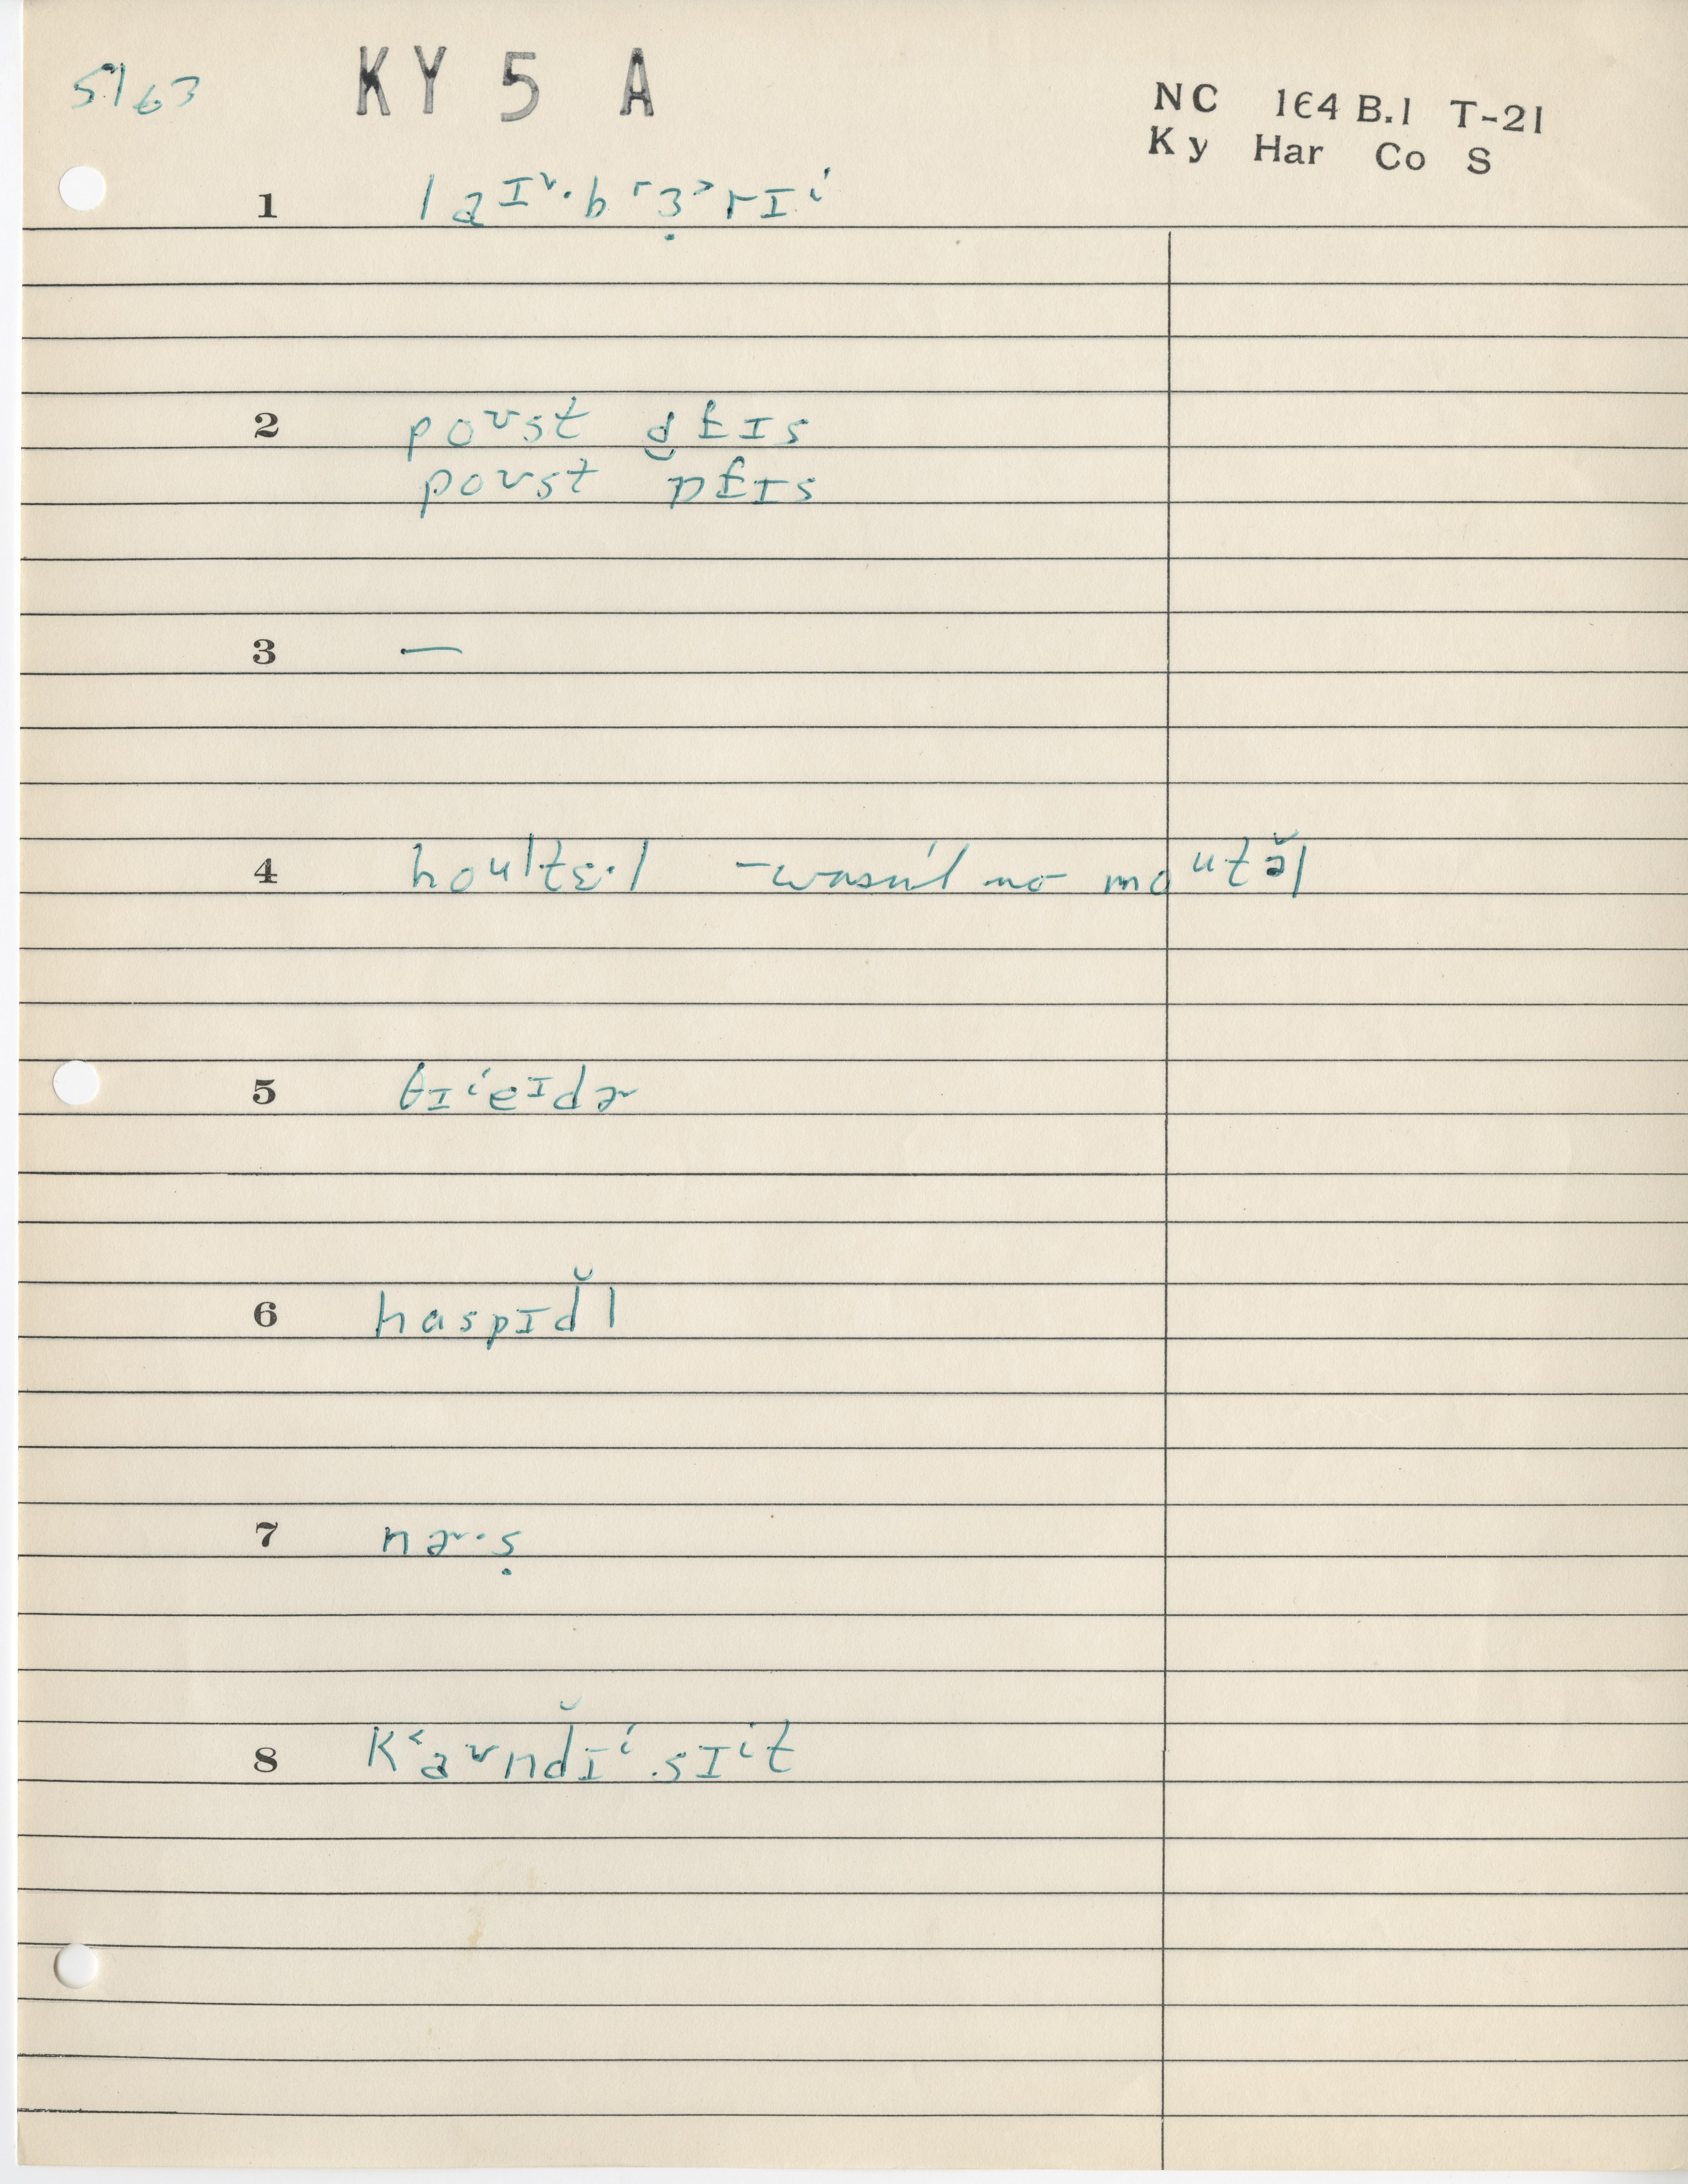 5163
KY 5 A
NC 164 B.1 T-21
Ky Har Co S
1 laɪᵛ·bʳɜ̣˃rɪⁱ
2 poʊst ɑ̯f̵ɪs
poʊst ɒf̵ɪs
3 —
4 hoᵘltɛ·l – wasn't no moᵘtə̆l
5 θɪⁱeᶦdɚ
6 haspɪd̆l
7 nɚ·ṣ
8 k˂aʊnd̆ɪⁱ sɪⁱt